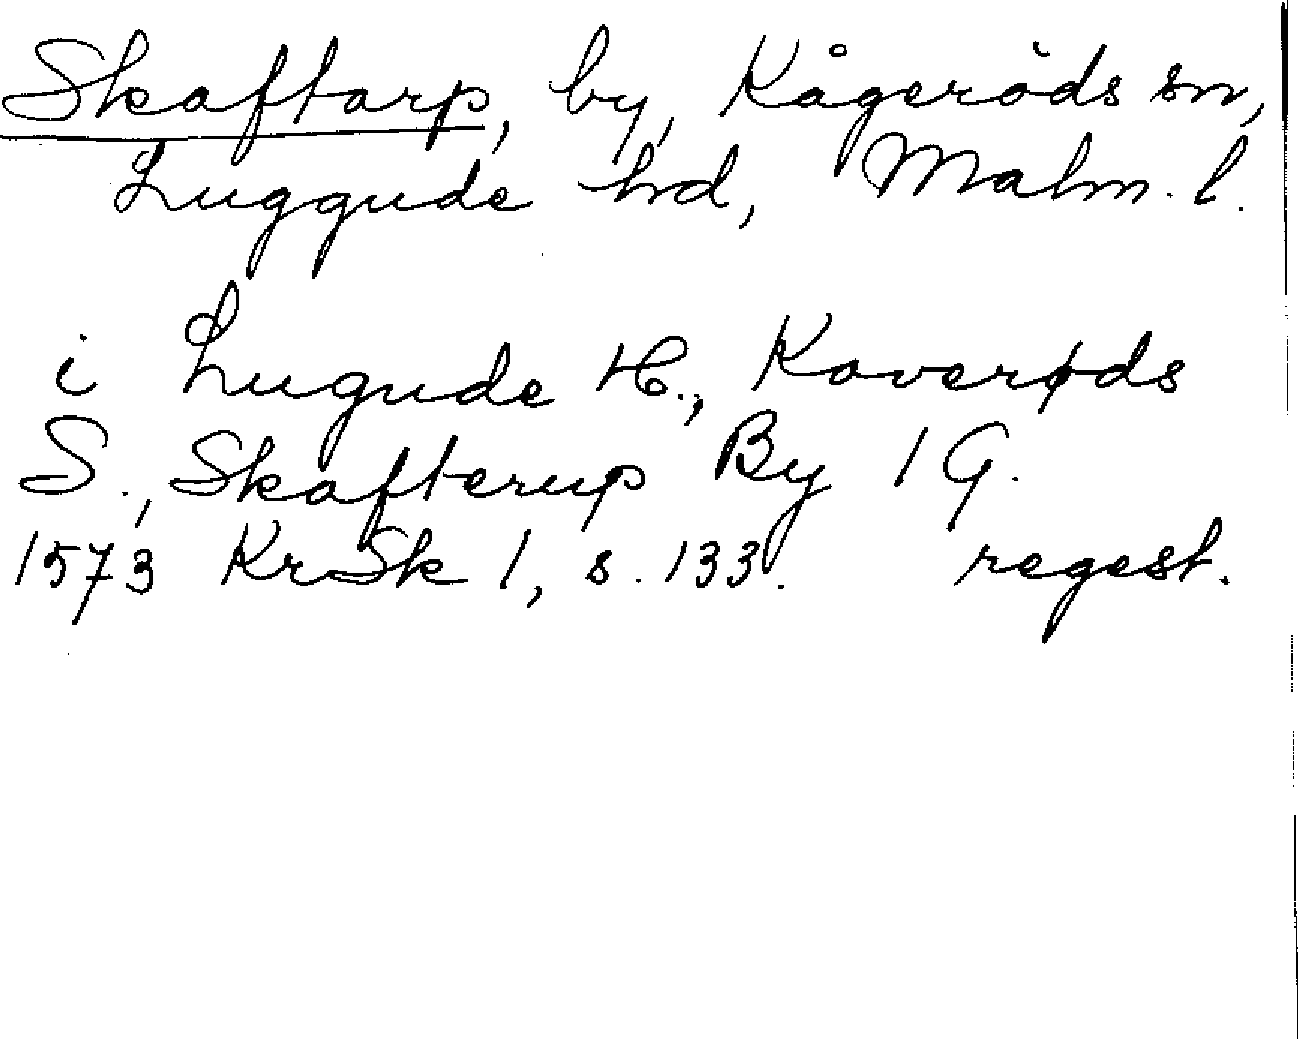 Skaftarp, by, Kågeröds sn,
Luggude hd, Malm. l.
i Lugude H., Koverøds
S., Skafterup By 1 G.
1573 KrSk 1, s. 133. regest.